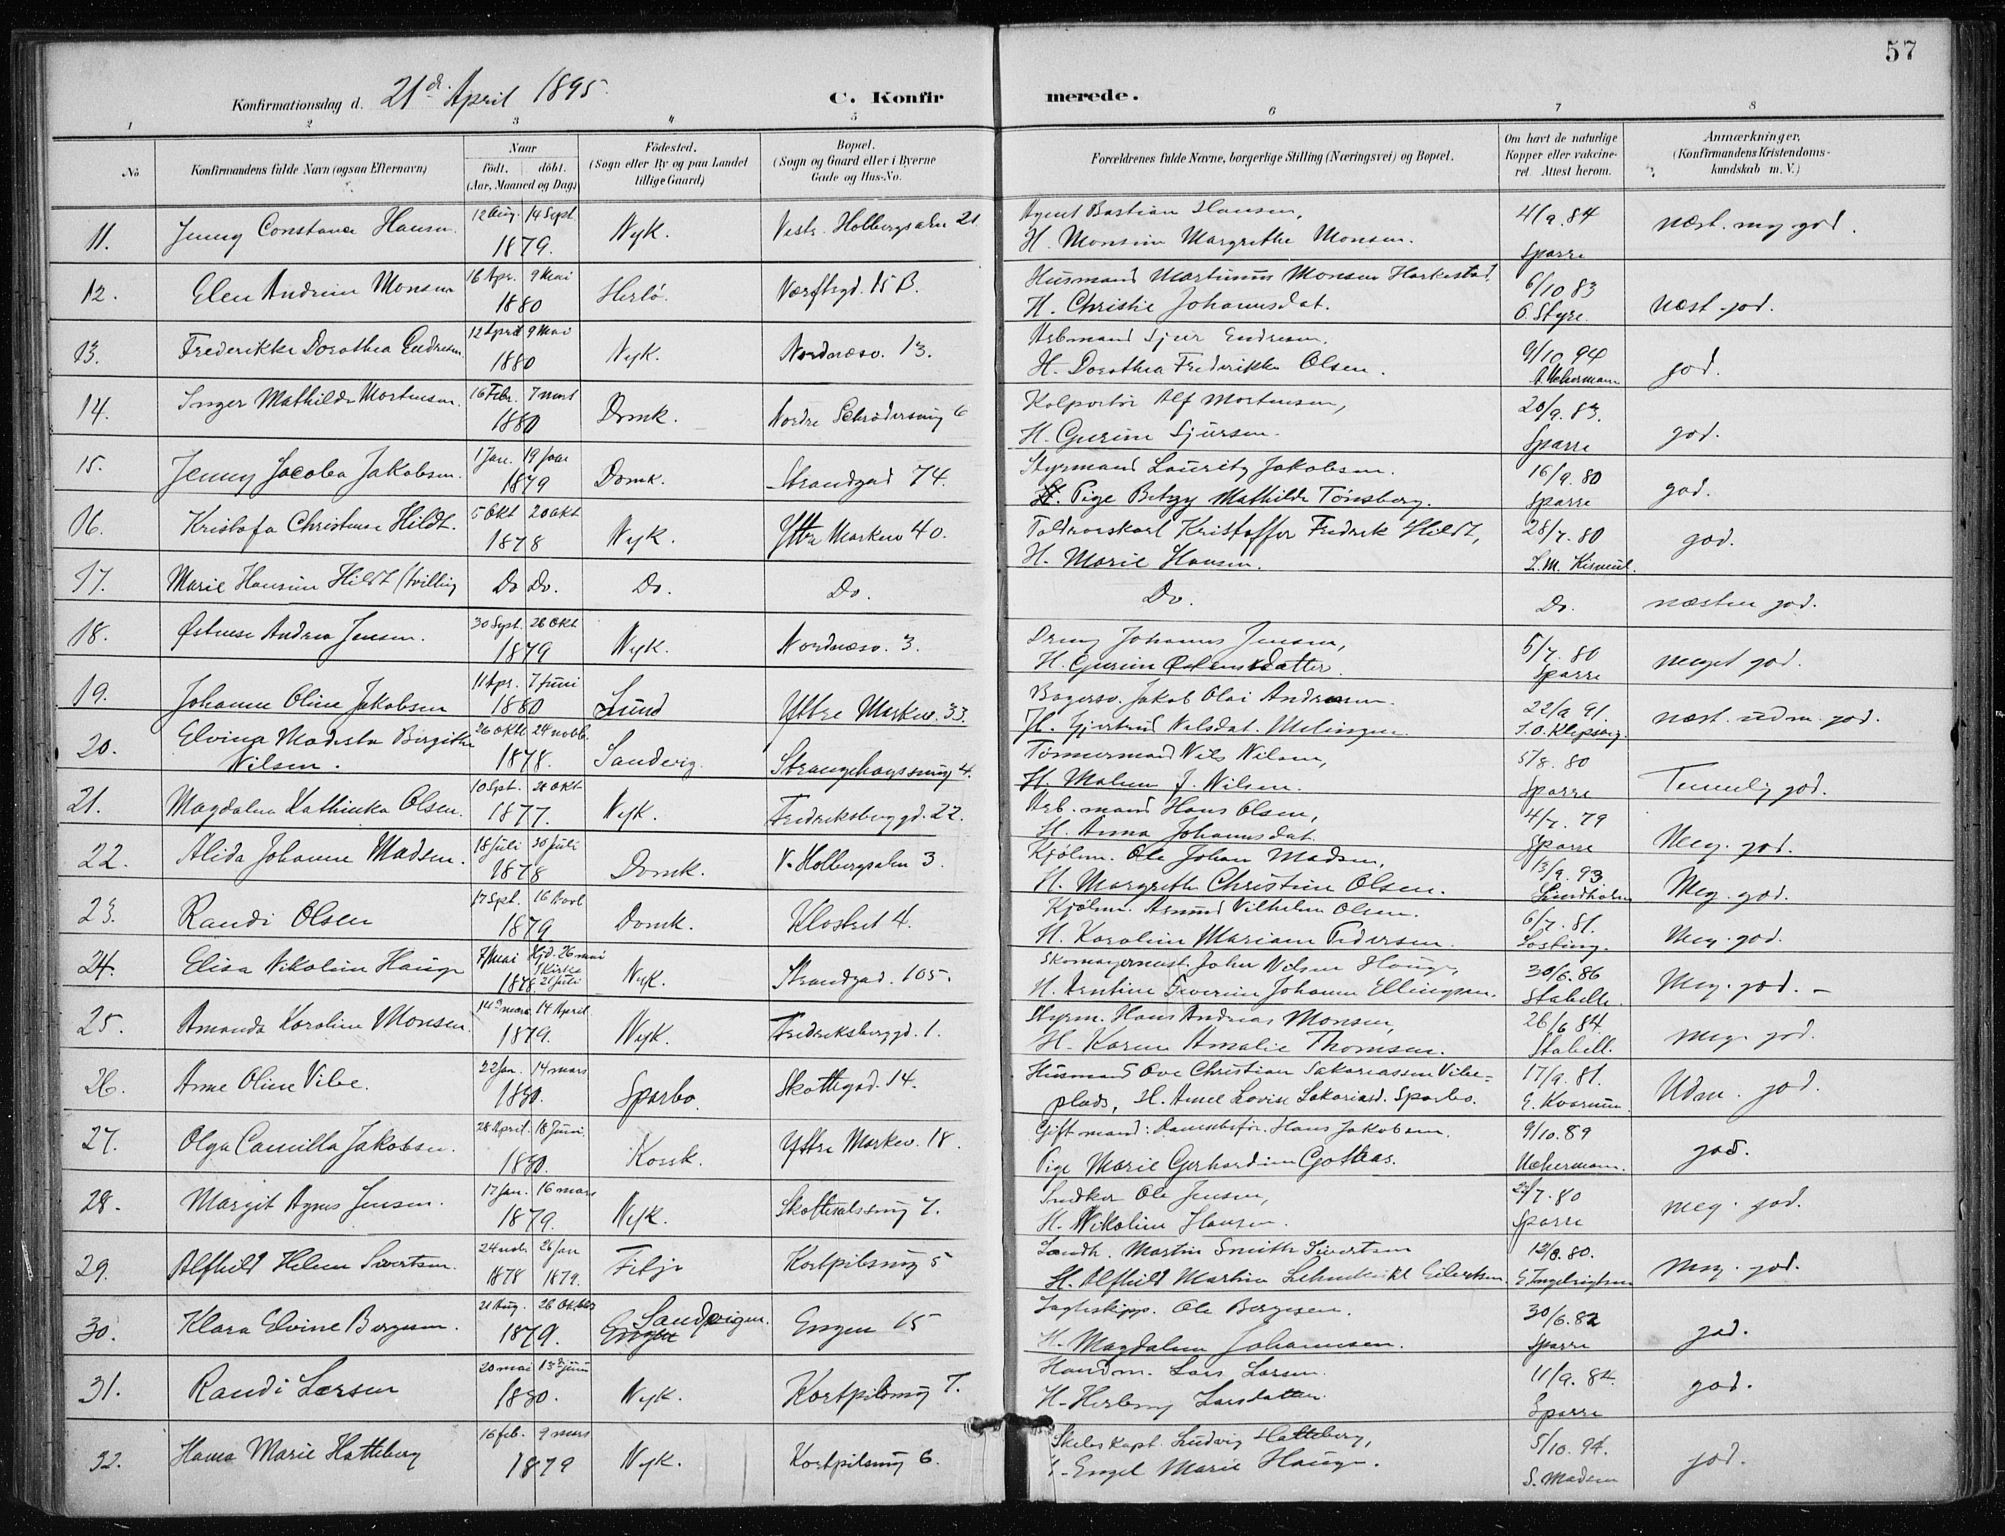 57
Konfirmationsdag d. 21de April 1895.
C. Konfirmerede.
1 2 3 4 5 6 7 8
No
Konfirmandens fulde Navn (ogsaa Efternavn)
Naar
født. døbt.
(Aar, Maaned og Dag)
Fødested.
(Sogn eller By og paa Landet
tillige Gaard)
Bopæl.
(Sogn og Gaard eller i Byerne
Gade og Hus-No.
Forældrenes fulde Navne, borgerlige Stilling (Næringsvei) og Bopæl.
Om havt de naturlige
Kopper eller vakcine-
ret Attest herom.
Anmærkninger,
(Konfirmandens Kristendoms-
kundskab m. V.)
11. Jenny Constance Hansen. 12 Aug. 14 Sept. 1879. Nyk. Vestr. Holbergsalm 21
Agent Bastian Hansen,
H. Monsine Margrethe Monsen. 4/9. 84 Sparre næst. meg. god.
12. Elen Andrine Monsen 16 Apr. 9 Mai 1880 Herlø. Værftsgd. 15 B.
Husmand Martinus Monsen Harkestad.
H. Christie Johannsdat. 6/10 83 O. Styre. næst. god.
13. Frederikke Dorothea Endresen 12 April 9 Mai 1880 Nyk. Nordnæsv. 13.
Arbmand Sjur Endresen.
H. Dorothea Frederikke Olsen. 9/10 94 Uchermann god.
14. Inger Mathilde Mortensen. 16 Febr. 7 mars 1880 Domk. Nordre Schrødersmug 6
Kolportør Alf Mortensen,
H. Gurine Sjursen. 20/9. 83. Sparre god.
15. Jenny Jacoba Jakobsen. 1 Jan. 19 Jan 1879 Domk. Strandgad 74.
Styrmand Lauritz Jakobsen.
H. Pige Betzy Mathilde Tønsberg. 16/9. 80 Sparre god.
16. Kristofa Christense Hildt. 5 Okt 20 Okt 1878 Nyk. Yttre Markev 40.
Toldroerskarl Kristoffer Fredrik Hildt,
H. Marie Hansen. 28/7. 80 god.
17. Marie Hansine Hildt (tvilling Do Do. Do. Do.
Do. Do. næsten god.
18. Østense Andrea Jensen. 30 Sept. 26 Okt 1879 Nyk. Nordnæsv. 3.
Johannes Jensen,
H. Gurine Østensdatter. 5/7. 80 Sparre meget god.
19. Johanne Oline Jakobsen 11 Apr. 7 Juni 1880 Lund Yttre Markev. 33.
Bagersv. Jakob Olai Andresen.
H. Gjertrud Nilsdat. Melingen. 22/9 91. næst. udm. god.
20. Elvina Modesta Birgitte
Nilsen. 26 Okt 24 novb. 1878. Sandvig. Strangehagssmug 4.
Tømmermand Nils Nilsen,
H. Malene J. Nilsen. 5/8. 80 Sparre Temmelig god.
21. Magdalena Kathinka Olsen. 10 Sept. 28 Okt 1877. Nyk. Fredriksberggd. 22.
Arb.mand Hans Olsen,
H. Anna Johannsdat. 4/7. 79 Sparre Meg. god.
22. Alida Johanne Madsen. 18 Juli 30 Juli 1878 Domk. V. Holbergsalm 3.
Kjølm. Ole Johan Madsen,
H. Margrethe Christine Olsen. 13/9. 93 Lindholm Meg. god.
23. Randi Olsen 17 Spt. 16 Novb 1879 Domk. Klostret 4.
Kjølm. Asmund Vilhelm Olsen.
H. Karoline Mariane Pedersen. 6/7. 81. Losting. Meg. god.
24. Elisa Nikoline Hauge 7 Mai Hjd. 26 mai i Kirke 1878. 21 Juli Nyk. Strandgad. 105.
Skomagermest. John Nilsen Hauge,
H. Arntine Severine Johanne Ellingsen. 30/6. 86 Stabell. Meg. god. –
25. Amanda Karoline Monsen 14de mars 14 April 1879. Nyk. Fredriksberggd. 1.
Styrm. Hans Andreas Monsen,
H. Karen Amalie Thomsen. 26/6 84. Stabell. meg. god.
26. Anne Oline Vibe. 22 Jan. 14 mars 1880. Sparbo. Skottegad. 14.
Husmand Ove Christian Sakariassen Vibe-
plads, H. Anne Lovise Sakariasd. Sparbo. 17/9. 81. E. Kvarum. Udm. god.
27. Olga Camilla Jakobsen. 28 April. 18 Juni. 1880. Korsk. Yttre Markev. 18.
Gift mand: Hans Jakobsen.
Pige Marie Gerhardine Gottaas. 9/10. 89 Uchermann. god.
28. Margit Agnes Jensen. 17 Jan. 16 mars 1879. Nyk. Skottesalssmug 7.
Snedker Ole Jensen,
H. Nikoline Hansen. /7. 80 Sparre meg. god.
29. Alfhild Helene Sivertsen. 24 nov. 26 Jan 1878 1879. Fitje Kortpilsmug 5
Landh. Martin Smith Sivertsen
H. Alfhild Martine Eilertsen. 12/8. 80. E. Ingebrigtsen Meg. god.
30. Klara Elvine Bergesen. 21 Aug. 26 Oktbr 1879. Engen Sandvigen. Engen 15
Jagteskipp. Ole Bergesen.
H. Magdalene Johannesen. 30/6. 82 Sparre god.
31. Randi Larsen 20 mai 13de juni 1880. Nyk. Kortpilsmug 7.
Handm. Lars Larsen.
H. Herborg Larsdatter 11/9. 84. Sparre god.
32. Hanna Marie Hatteberg 16 feb. 9 mars 1879 Nyk. Kortpilsmug 6.
Skibskapt. Ludvig Hatteberg,
H. Engel Marie Hauge. 5/10. 94. S. Madsen god.